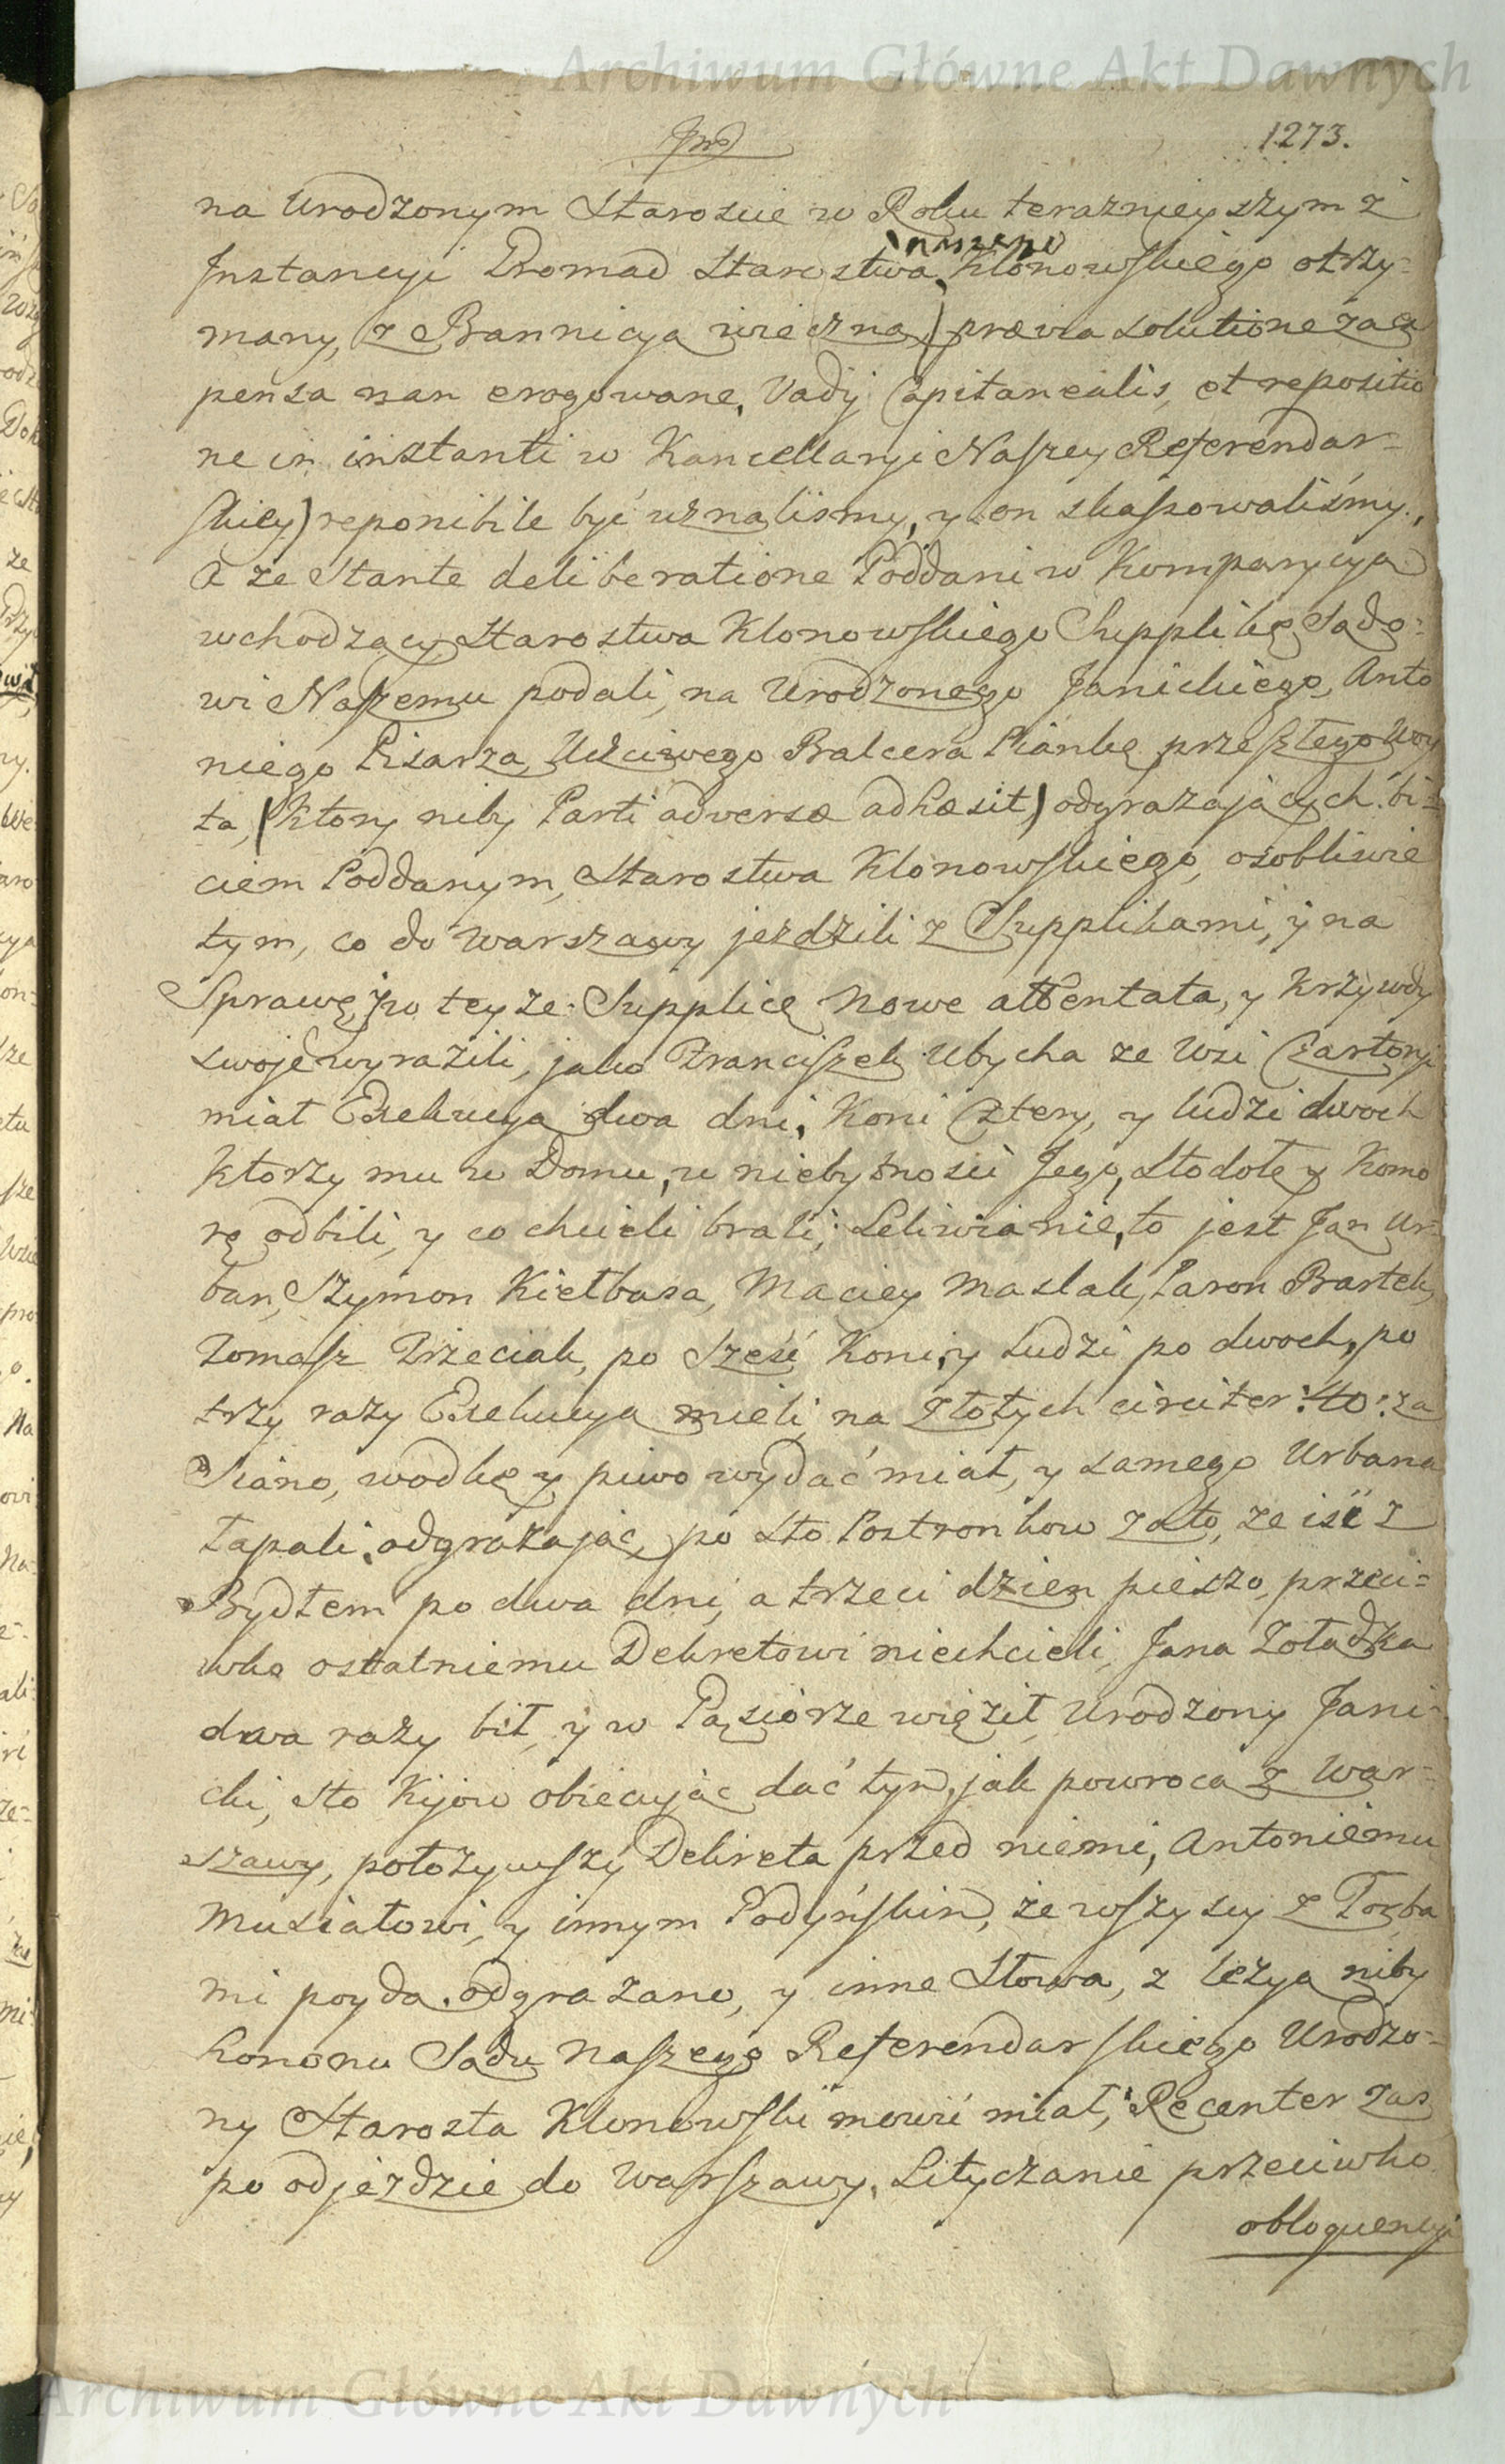 Archiwum Główne Akt Dawnych
1273.
na Urodzonym Staroscie w Roku teraznieyszym z
Instancyi Gromad Starostwa naszego Klonowskiego otrzy=
many, z Bannicyą wieczną, (prævia solutione za ex
pensa nan erogowane, Vadij Capitanealis, et repositio
ne in instanti w Kancellaryi Naszey Referendar=
skiey) reponibile być uznalismy, y on skassowaliśmy.,
A ze Stante deliberatione Poddani w Komparycyą
wchodzący Starostwa Klonowskiego Supplikę Sądo=
wi Naszemu podali, na Urodzonego Janickiego, Anto
niego Pisarza, Uczciwego Balcera Piankę przeszłego Woy
ta, (ktory niby Parti adversæ adhæsit) odgrazających bi=
ciem Poddanym, Starostwa Klonowskiego, osobliwie
tym, co do Warszawy jezdzili z Supplikami, y na
Sprawę, po teyze Supplice nowe attentata, y krzywdy
swoje wyrazili, jako Franciszek Ubycha ze Wsi Czartoryi
miał Exekucyą dwa dni, Koni Cztery, y ludzi dwoch
ktorzy mu w Domu, w niebytnosci Jego, Stodołę y Komo
rę odbili, y co chcieli brali; Leliwianie, to jest Jan Ur=
ban, Szymon Kiełbasa, Maciey Maslak, Paron Bartek,
Tomasz Trzeciak, po Sześć Koni, y Ludzi po dwoch, po
trzy razy Exekucyą mieli, na Złotych circiter: 40: za
Siano, wodkę y piwo wydać miał, y samego Urbana
łapali, odgrazając po sto Postronkow za to, ze iść z
Bydłem po dwa dni, a trzeci dzien pieszo, przeci=
wko ostatniemu Dekretowi niechcieli, Jana Zołądka
dwa razy bił, y w Pąsiorze więził, Urodzony Jani=
cki, sto Kijow obiecując dać tym, jak powrocą z War=
szawy, położywszy Dekreta przed niemi, Antoniemu
Musiałowi, y innym Podyńskim, że wszyscy z Torba
mi poydą, odgrazano, y inne Słowa, z lezyą niby
honoru Sądu Naszego Referendarskiego Urodzo=
ny Starosta Klonowski mowić miał, Recenter zas
po odjezdzie do Warszawy, Lityczanie przeciwko
obloquencyi
Archiwum Główne Akt Dawnych